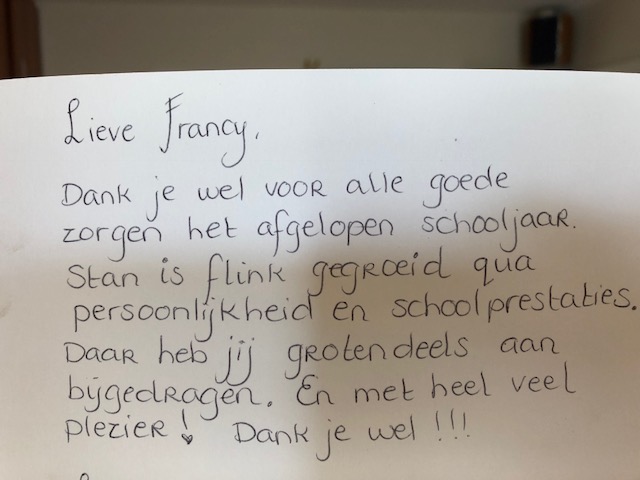 Lieve Francy,
Dank je wel voor alle goede
zorgen het afgelopen schooljaar.
Stan is flink gegroeid qua
persoonlijkheid en schoolprestaties.
Daar heb jij grotendeels aan
bijgedragen. En met heel veel
plezier! Dank je wel!!!